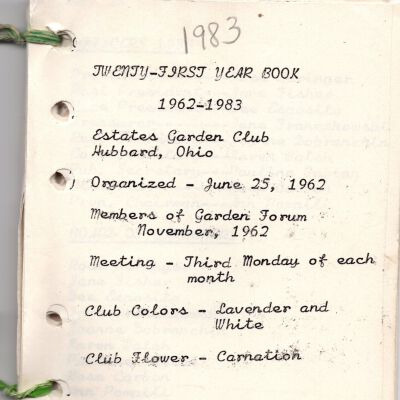 1983
TWENTY-FIRST YEAR BOOK
1962-1983
Estates Garden Club
Hubbard, Ohio
Organized - June 25, 1962
Members of Garden Forum
November, 1962
Meeting - Third Monday of each
month
Club Colors - Lavender and
White
Club Flower - Carnation